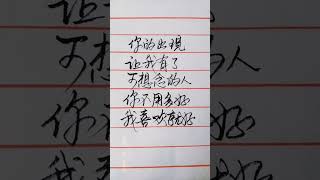 你的出現
让我有了
可想念的人
你不用多好
我喜欢就好